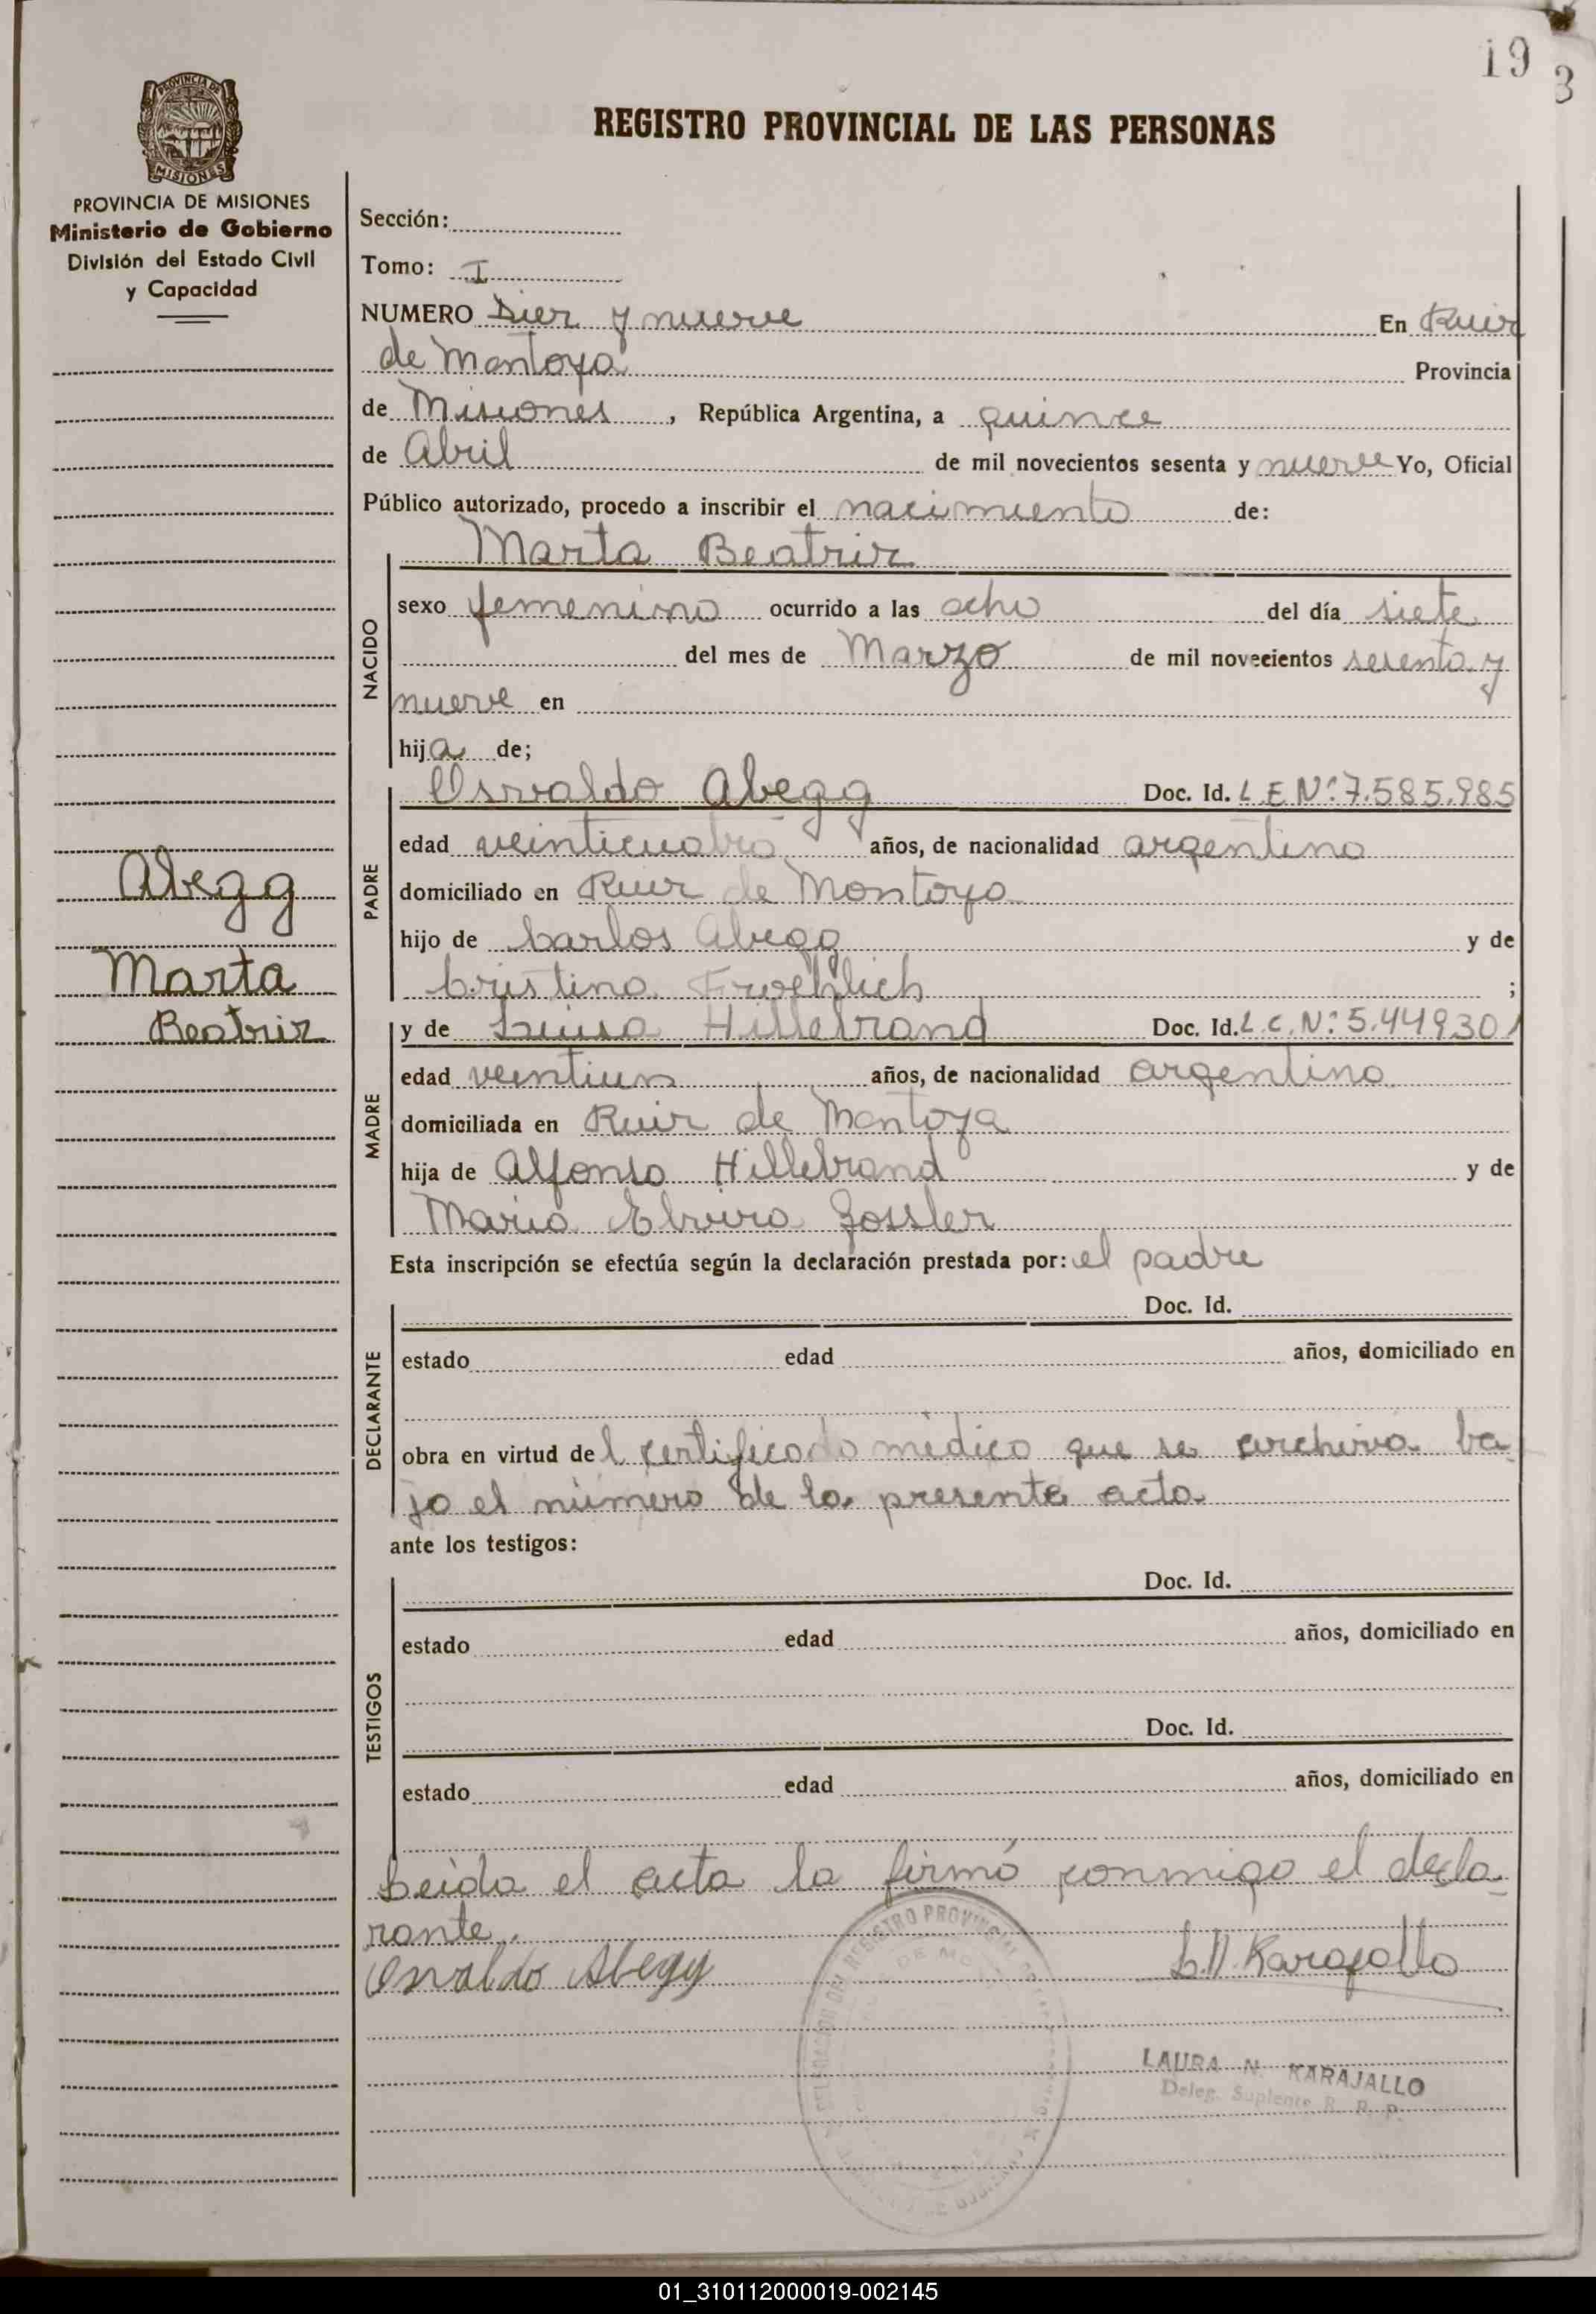 19
3
PROVINCIA DE
MISIONES
PROVINCIA DE MISIONES
Ministerio de Gobierno
División del Estado Civil
y Capacidad
REGISTRO PROVINCIAL DE LAS PERSONAS
Sección:
Tomo: I
NUMERO Diez y nueve En Ruiz
de Montoya Provincia
de Misiones, República Argentina, a quince
de Abril de mil novecientos sesenta y nueve Yo, Oficial
Público autorizado, procedo a inscribir el nacimiento de:
NACIDO
Marta Beatriz
sexo femenino ocurrido a las ocho del día siete
del mes de Marzo de mil novecientos sesenta y
nueve en
hija de;
PADRE
Osvaldo Abegg Doc. Id. L.E.Nº:7.585.985
edad veinticuatro años, de nacionalidad argentina
domiciliado en Ruiz de Montoya
hijo de Carlos Abegg y de
Cristina Froehlich ;
Abegg
Marta
Beatriz
MADRE
y de Luisa Hillebrand Doc. Id. L.C.Nº:5.449.301
edad veintiun años, de nacionalidad argentina
domiciliada en Ruiz de Montoya
hija de Alfonso Hillebrand y de
Maria Elvira Gossler
Esta inscripción se efectúa según la declaración prestada por: el padre
DECLARANTE
Doc. Id.
estado edad años, domiciliado en
obra en virtud del certificado médico que se archiva ba
jo el número de la presente acta
ante los testigos:
TESTIGOS
Doc. Id.
estado edad años, domiciliado en
Doc. Id.
estado edad años, domiciliado en
Leída el acta la firmó conmigo el decla-
rante.
Osvaldo Abegg L.N. Karajallo
REGISTRO PROVINCIAL
LAURA N. KARAJALLO
Deleg. Suplente R. R. P.
01_310112000019-002145